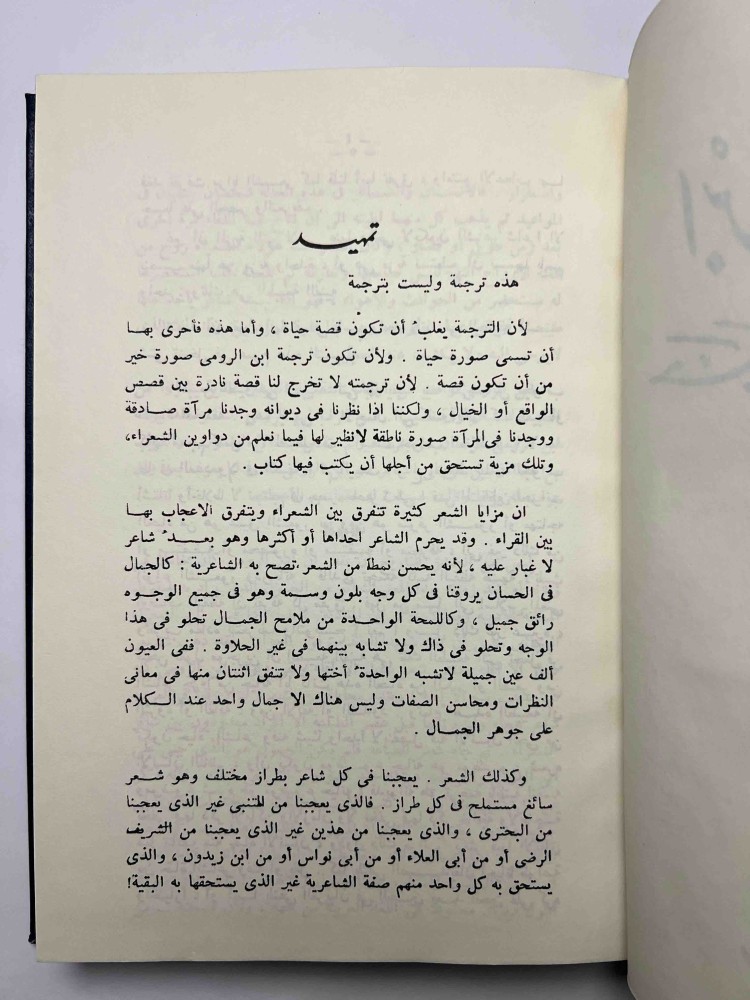 تمهيد
هذه ترجمة وليست بترجمة
لأن الترجمة يغلب أن تكون قصة حياة ، وأما هذه فأحرى بها
أن تسمى صورة حياة . ولأن تكون ترجمة ابن الرومى صورة خير
من أن تكون قصة . لأن ترجمته لا تخرج لنا قصة نادرة بين قصص
الواقع أو الخيال ، ولكننا اذا نظرنا فى ديوانه وجدنا مرآة صادقة
ووجدنا فى المرآة صورة ناطقة لا نظير لها فيما نعلم من دواوين الشعراء،
وتلك مزية تستحق من أجلها أن يكتب فيها كتاب .
ان مزايا الشعر كثيرة تتفرق بين الشعراء ويتفرق الاعجاب بها
بين القراء . وقد يحرم الشاعر احداها أو أكثرها وهو بعــد شاعر
لا غبار عليه ، لأنه يحسن نمطا من الشعر تصح به الشاعرية : كالجمال
فى الحسان يروقنا فى كل وجه بلون وسمة وهو فى جميع الوجــوه
رائق جميل ، وكاللمحة الواحــدة من ملامح الجمــال تحلو فى هذا
الوجه وتحلو فى ذاك ولا تشابه بينهما فى غير الحلاوة . ففى العيون
ألف عين جميلة لا تشبه الواحدة أختها ولا تتفق اثنتان منها فى معانى
النظرات ومحاسن الصفات وليس هناك الا جمال واحد عند الــكلام
على جوهر الجمــال .
وكذلك الشعر . يعجبنا فى كل شاعر بطراز مختلف وهو شــعر
سائغ مستملح فى كل طراز . فالذى يعجبنا من المتنبى غير الذى يعجبنا
من البحترى ، والذى يعجبنا من هذين غير الذى يعجبنا من الشريف
الرضى أو من أبى العلاء أو من أبى نواس أو من ابن زيدون ، والذى
يستحق به كل واحد منهم صفة الشاعرية غير الذى يستحقها به البقية!